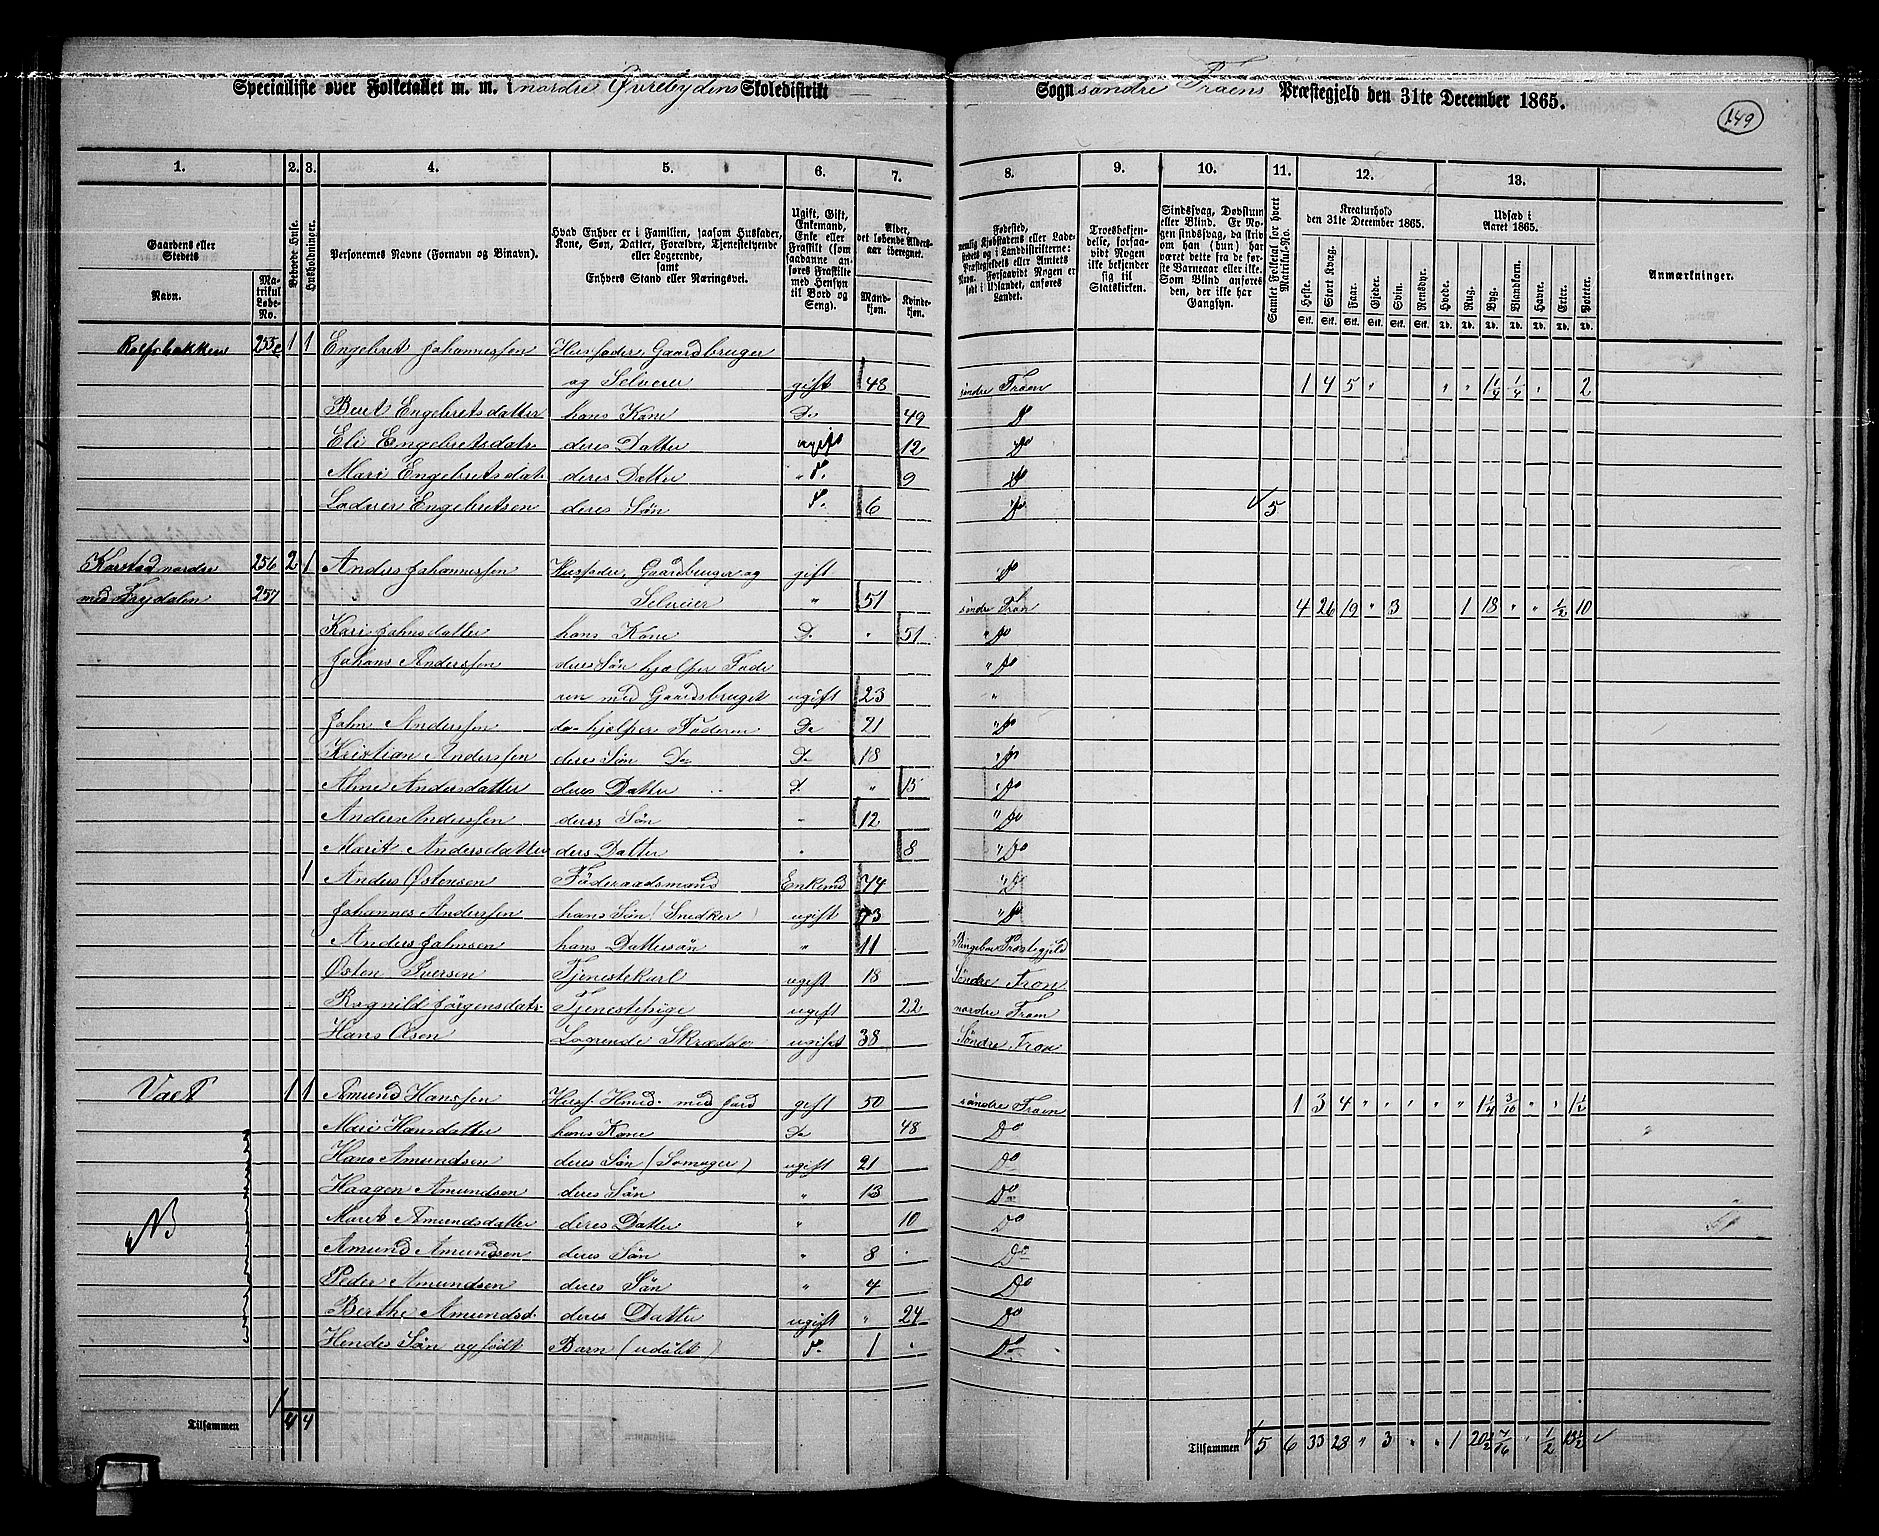 Specialliste over Folketallet m. m. i nordre Øvrebygdens Skoledistrikt Sogn søndre Froens Præstegjeld den 31te December 1865.
149
1. 2. 3. 4. 5. 6. 7. 8. 9. 10. 11. 12. 13.
Gaardens eller Stedets Navn. Matrikul Løbe-No. Beboede Huse. Husholdninger. Personernes Navne (Fornavn og Binavn). Hvad Enhver er i Familien, saasom Husfader, Kone, Søn, Datter, Forældre, Tjenestetyende eller Logerende, samt Enhvers Stand eller Næringsvei. Ugift, Gift, Enkemand, Enke eller Fraskilt (som saadanne anføres Fraskilte med Hensyn til Bord og Seng). Alder, det løbende Aldersaar iberegnet. Mandkjøn. Kvindekjøn.
Fødested, nemlig Kjøbstadens eller Ladestedets og i Landdistrikterne: Præstegjeldets eller Amtets Navn. Forsaavidt Nogen er født i Udlandet, anføres Landet. Troesbekjendelse, forsaavidt Nogen ikke bekjender sig til Statskirken. Sindssvag, Døvstum eller Blind. Er Nogen sindssvag, da skriv om han (hun) har været dette fra de første Barneaar eller ikke. Som Blind anføres den, der ikke har Gangsyn. Samlet Folketal for hvert Matrikul-No. Kreaturhold den 31te December 1865. Udsæd i Aaret 1865. Anmærkninger.
Heste. Stort Kvæg. Faar. Gjeder. Svin. Rensdyr. Hvede. Rug. Byg. Blandkorn. Havre. Erter. Poteter.
Stk. Stk. Stk. Stk. Stk. Stk. Td. Td. Td. Td. Td. Td. Td.
Rolfsbakken 255c 1 1 Engebret Johannessen Husfader, Gaardbruger
og Selveier gift 48 søndre Froen 1 4 5 " " " 1 1/4 1/4 " 2
Berit Engebretsdatter hans Kone Do 49 Do
Eli Engebretsdatr deres Datter ugift 12 Do
Mari Engebretsdat. deres Datter " 9 Do
Engebretsen deres Søn 6 Do 5
Karstad nordre 256 2 1 Anders Johannessen Husfader, Gaardbruger og gift Do
med 257 Selveier " 51 søndre Fron 4 26 19 " 3 1 18 " " 1/2 10
Kari Johnsdatter hans Kone Do " 51 " Do
Johans Anderssen deres Søn hjelper Fade " Do
ren med Gaardsbruget ugift 23 "
John Anderssen do hjelper Faderen Do 21 " Do
Kristian Anderssen deres Søn Do Do 18 " Do
Andersdatter deres Datter Do " 15 " Do
Anders Anderssen deres Søn " 12 " Do
Marit Andersdatter ders Datter " 8 " Do
1 Anders Østensen Føderaadsmand Enkemd 74 " Do
Johannes Anderssen hans Søn (Snedker) ugift " Do
Anders Johnsen hans Dattersøn " 11 Ringeboe Præstegjeld
Østen Iversen Tjenestekarl ugift 18 Søndre Fron
Ragnild Jørgensdatr Tjenestepige ugift 22 nordre Fron
Hans Olsen Logerende Skrædder ugift 38 Søndre Fron
1 1 Amund Hanssen Husf. Hmd. med Jord gift 50 søndre Froen 1 3 4 " " " " " 1 1/4 3/16 " " 1 1/2
Mari Hansdatter hans Kone Do 48 Do
Hans Amundsen deres Søn ugift 21 Do
Haagen Amundsen deres Søn " 13 Do
NB Marit Amundsdatter deres Datter " 10 Do
Amund Amundsen deres Søn " 8 Do
Peder Amundsen deres Søn " 4 Do
Berthe Amundsd. deres Datter ugift " 24 Do
Hendes Søn født Barn 1 Do
Tilsammen 4 4 Tilsammen 5 6 33 28 " 3 " " 1 20 1/2 7/16 " 1/2 13 1/2